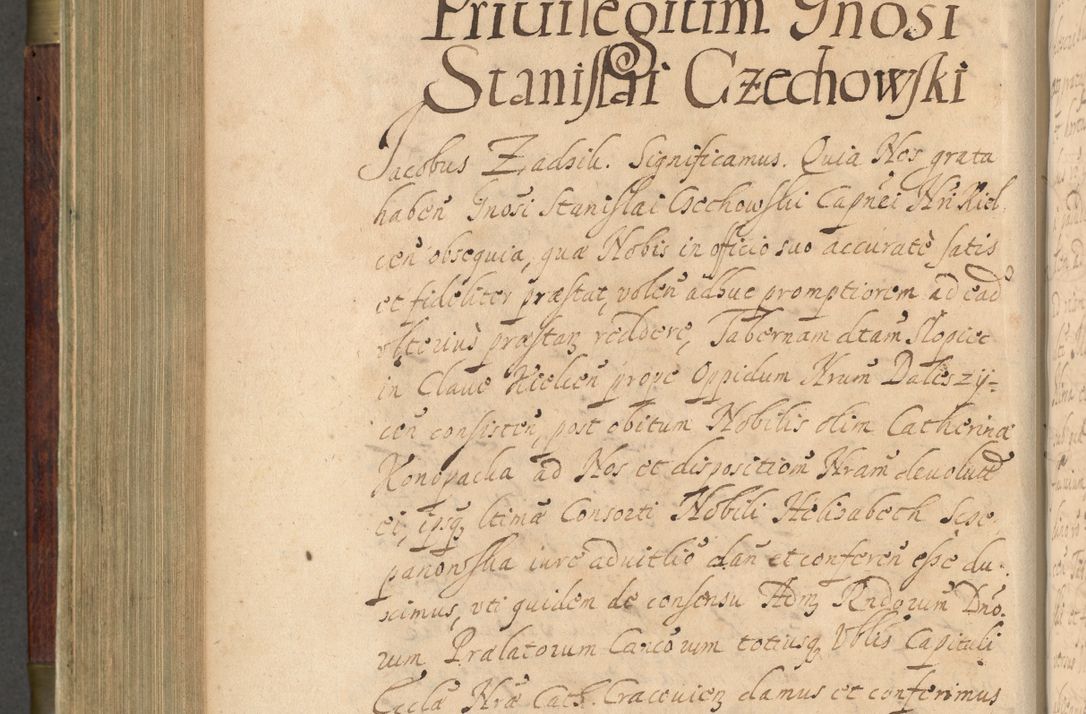 Priuilegium Gnosi
Stanislai Czechowski
Jacobus Zadzik. Significamus. Quia Nos grata
haben Gnosi Stanislai Czechowski Capnei Nri Kiel
cen obsequia, quæ Nobis in officio suo accuratè satis
et fideliter præstat, volen adhuc promptiorem ad ead
vlterius præstanz reddere, Tabernam dtam Slopiec
in Claue Kielcen prope Oppidum Nrum Daleszy=
cen consisten, post obitum Nobilis olim Catherinæ
Konopacka ad Nos et dispositiom Nram deuolut
ei, ipsq ltimæ Consorti Nobili Helisabeth Scse
panowska iure aduitlio dan et conferen esse du
ximus, vti quidem de consensu Adm Rndorum Dno
rum Prælatorum Canco rum totiusq Vblis Capituli
Eccla Nræ Cath. Cracouien damus et conferimus